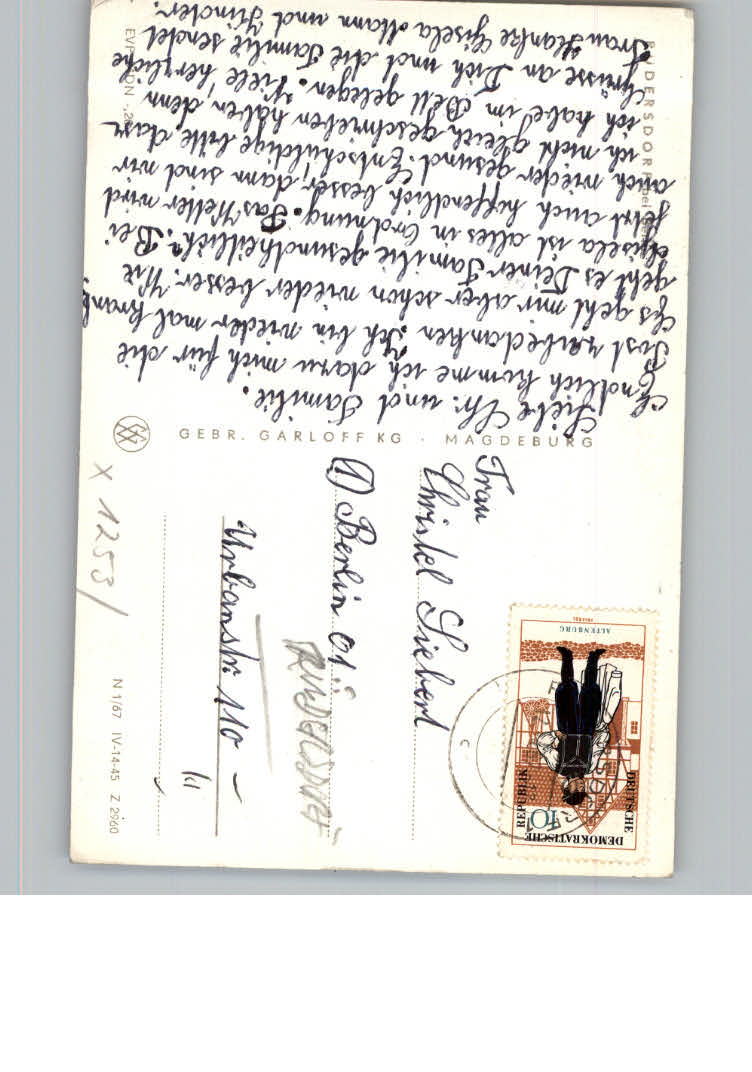 RÜDERSDORF bei Berlin
Liebe Chr. und Familie.
Endlich komme ich dazu mich für die
Post zu bedanken. Ich bin wieder mal krank.
Es geht mir aber schon wieder besser. Wie
geht es Deiner Familie gesundheitlich? Bei
Gisela ist alles in Ordnung. Das Wetter wird
jetzt auch hoffendlich besser, dann sind wir
auch wieder gesund. Entschuldige bitte das
ich nicht gleich geschrieben haben, denn
ich habe im Bett gelegen. Viele herzliche
Grüsse an Dich und die Familie sendet
Frau Hanke Gisela Mann und Kinder.
EVP MDN -,20
GEBR. GARLOFF KG · MAGDEBURG
Frau
Christel Siebert
(1) Berlin 61
Urbanstr. 110 -
RÜDERSDORF
X 1253/
N 1/67 IV-14-45 Z 2960
DEUTSCHE
DEMOKRATISCHE
REPUBLIK
10
ALTENBURG